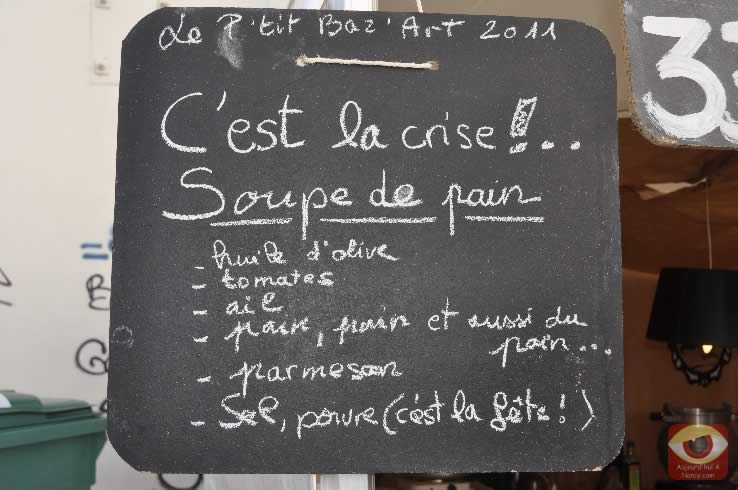 Le P'tit Baz'Art 2011
C'est la crise !...
Soupe de pain
- huile d'olive
- tomates
- ail
- pain, pain et aussi du
pain...
- parmesan
- Sel, poivre (c'est la fête !)
33
Aujourd'hui A
Nancy.com